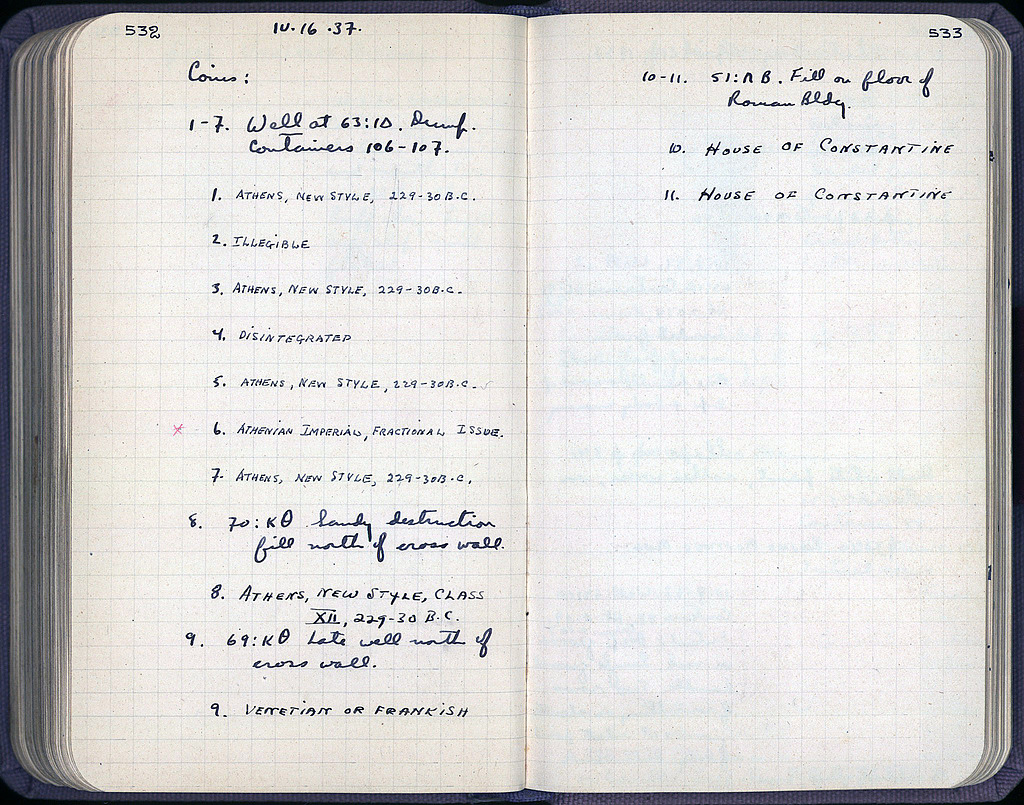 532
IV·16·37.
Coins:
1-7. Well at 63:ΙΔ. Dump.
Containers 106-107.
1. ATHENS, NEW STYLE, 229-30 B.C.
2. ILLEGIBLE
3. ATHENS, NEW STYLE, 229-30 B.C.
4. DISINTEGRATED
5. ATHENS, NEW STYLE, 229-30 B.C.
x 6. ATHENIAN IMPERIAL, FRACTIONAL ISSUE.
7. ATHENS, NEW STYLE, 229-30 B.C.
8. 70:ΚΘ Sandy destruction
fill north of cross wall.
8. ATHENS, NEW STYLE, CLASS
XII, 229-30 B.C.
9. 69:ΚΘ Late well north of
cross wall.
9. VENETIAN OR FRANKISH
533
10-11. 51:ΛΒ. Fill on floor of
Roman Bldg.
10. HOUSE OF CONSTANTINE
11. HOUSE OF CONSTANTINE